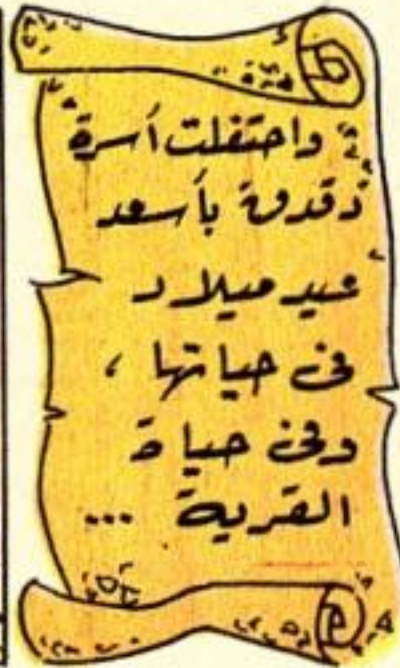 واحتفلت أسرة
دقدق بأسعد
عيد ميلاد
فى حياتها ،
وفى حياة
القرية ...